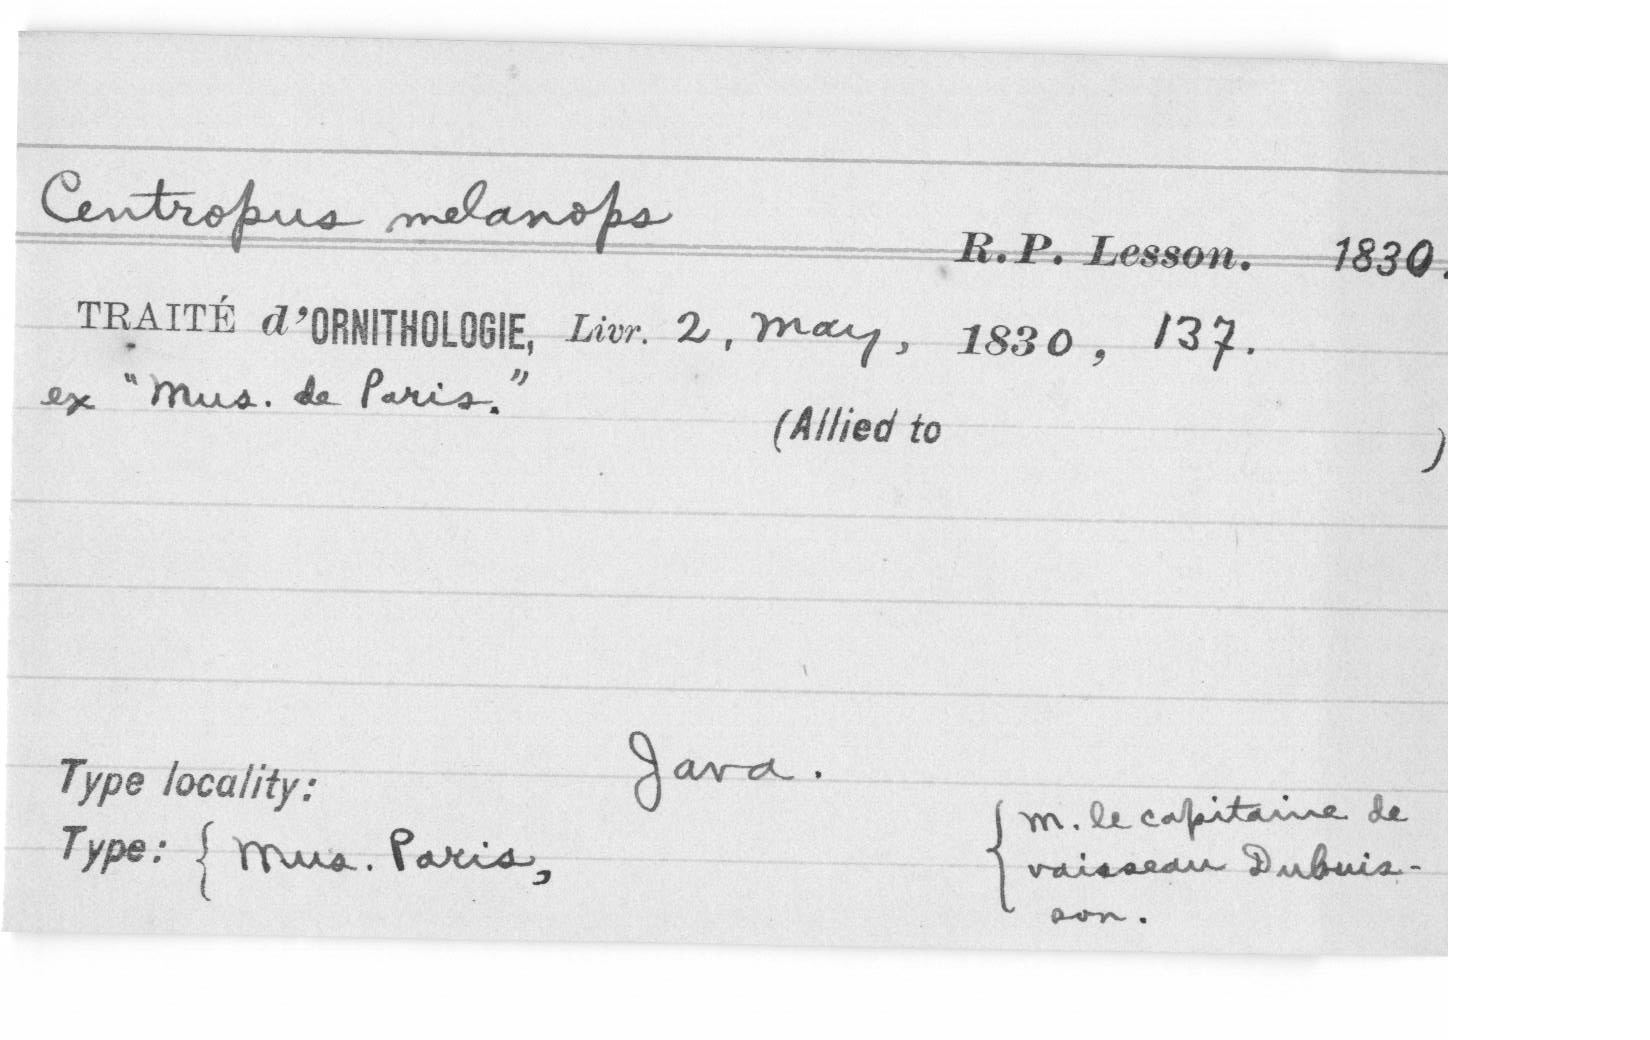 Centropus melanops
R. P. Lesson. 1830.
TRAITÉ d'ORNITHOLOGIE, Livr. 2, May, 1830, 137.
ex "Mus. de Paris."
(Allied to )
Type locality: Java.
Type: { Mus. Paris, { M. le capitaine de
vaisseau Dubuis-
son.